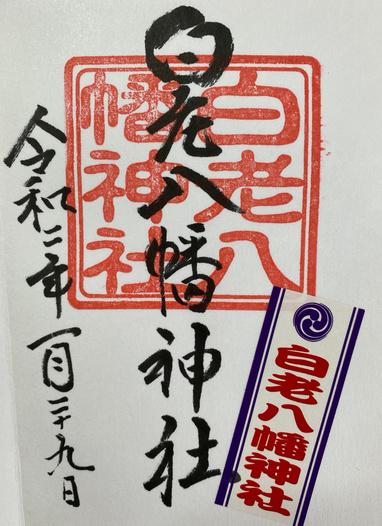 白老八幡神社
白老八
幡神社
令和二年一月二十九日
白老八幡神社